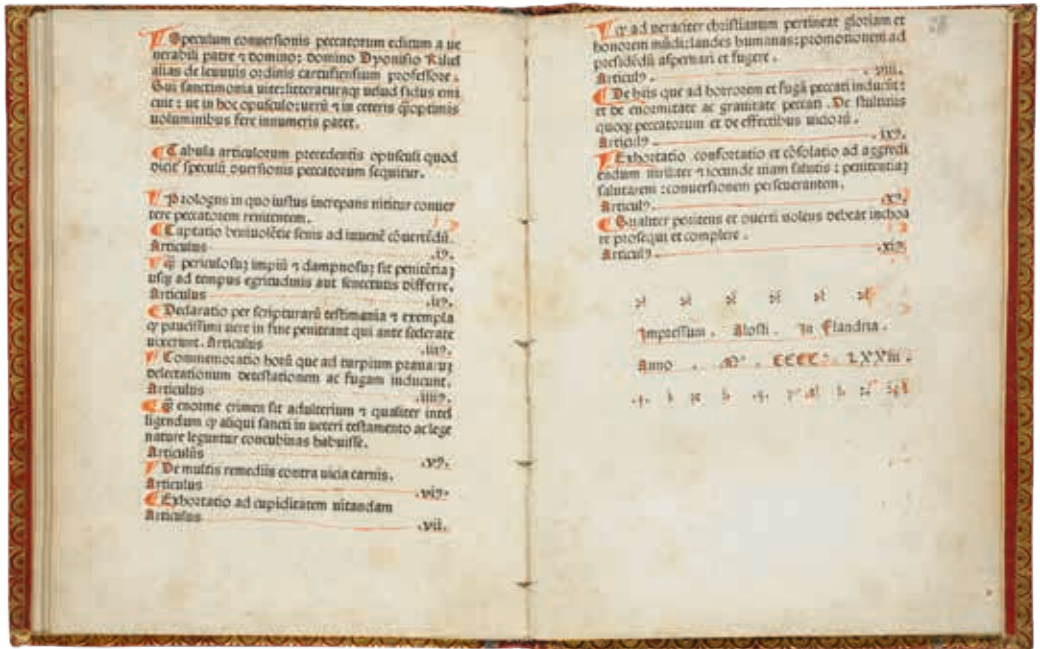 Speculum conuersionis peccatorum editum a ue
nerabili patre ⁊ domino: domino Dyonisio Rikel
alias de leuuuis ordinis cartusiensium professore.
Cui sanctimonia uite: litteraturaqꝫ uelud sidus emi
cuit: ut in hoc opusculo: ueru̅ ⁊ in ceteris optimis
uoluminibus fere innumeris patet.
Tabula articulorum precedentis opusculi quod
speculu̅ peccatorum sequitur.
Prologus in quo iustus increpans nititur conuer
tere peccatorem renitentem.
Captatio beniuole̅tie senis ad iuuene̅ co̅uerte̅du̅.
Articulus .iꝰ.
periculosuꝫ impiu̅ ⁊ dampnosuꝫ sit penite̅tiaꝫ
usqꝫ ad tempus egritudinis aut senectutis differre.
Articulus .iiꝰ.
Declaratio per scripturaru̅ testimonia ⁊ exempla
ꝙ paucissimi uere in fine peniteant qui ante scelerate
uixerunt. Articulus .iiiꝰ.
Commemoratio horu̅ que ad turpium prauaruꝫ
delectationum detestationem ac fugam inducunt.
Articulus .iiiiꝰ.
enorme crimen sit adulterium ⁊ qualiter intel
ligendum ꝙ aliqui sancti in ueteri testamento ac lege
nature leguntur concubinas habuisse.
Articulus .vꝰ.
De multis remediis contra uicia carnis.
Articulus .viꝰ.
Exhortatio ad cupiditatem uitandam
Articulus .vii.
ꝙ ad ueraciter christianum pertineat gloriam et
honorem mu̅di: laudes humanas: promotionem ad
preside̅dū aspernari et fugere.
Articulꝰ. .viii.
De hiis que ad horrorem et fuga̅ peccati inducu̅t:
et de enormitate ac grauitate peccati. De stultitiis
quoqꝫ peccatorum et de effectibus uicioru̅.
Articulꝰ .ixꝰ.
Exhortatio confortatio et co̅solatio ad aggredi
endum uiriliter ⁊ iocunde uiam salutis: penitentiaꝫ
salutarem: conuersionem perseuerantem.
Articulꝰ. .xꝰ.
Qualiter penitens et co̅uerti uolens debeat inchoa
re prosequi et complere.
Articulꝰ. .xiꝰ.
Impressum. Alosti. In Flandria.
Anno . Mº . CCCCº. LXXiii.